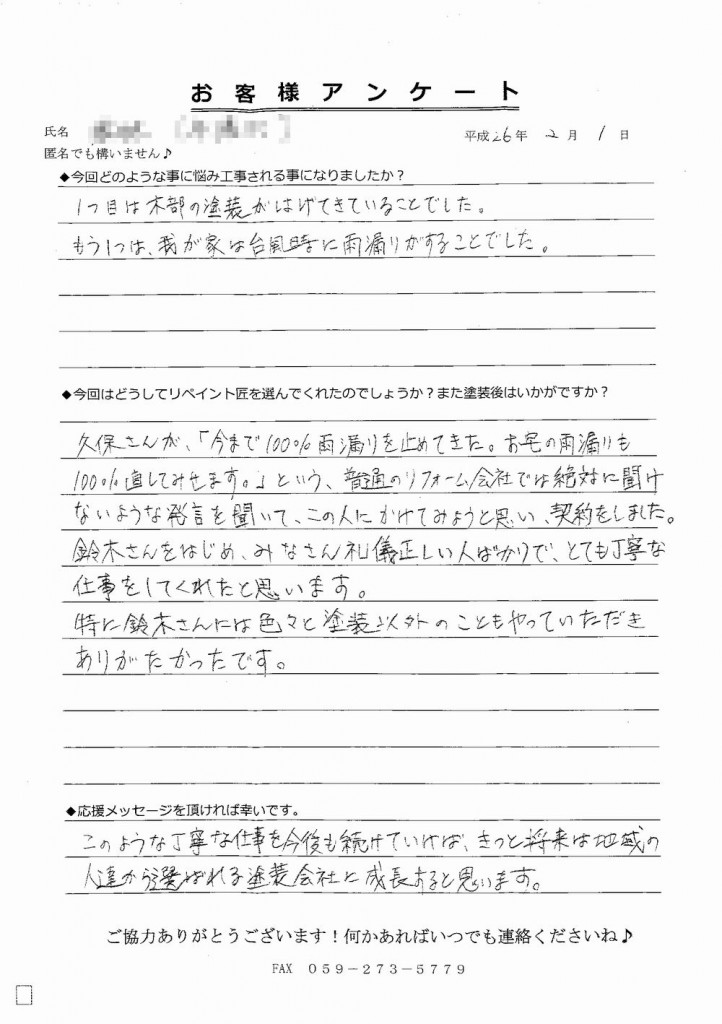 お客様アンケート
氏名
平成26年 2月 1日
匿名でも構いません♪
◆今回どのような事に悩み工事される事になりましたか？
1つ目は木部の塗装がはげてきていることでした。
もう1つは、我が家は台風時に雨漏りがすることでした。
◆今回はどうしてリペイント匠を選んでくれたのでしょうか？また塗装後はいかがですか？
久保さんが、「今まで100%雨漏りを止めてきた。お宅の雨漏りも
100%直してみせます。」という、普通のリフォーム会社では絶対に聞け
ないような発言を聞いて、この人にかけてみようと思い、契約をしました。
鈴木さんをはじめ、みなさん礼儀正しい人ばかりで、とても丁寧な
仕事をしてくれたと思います。
特に鈴木さんには色々と塗装以外のこともやっていただき
ありがたかったです。
◆応援メッセージを頂ければ幸いです。
このような丁寧な仕事を今後も続けていけば、きっと将来は地域の
人達から選ばれる塗装会社に成長すると思います。
ご協力ありがとうございます！何かあればいつでも連絡くださいね♪
FAX 059-273-5779